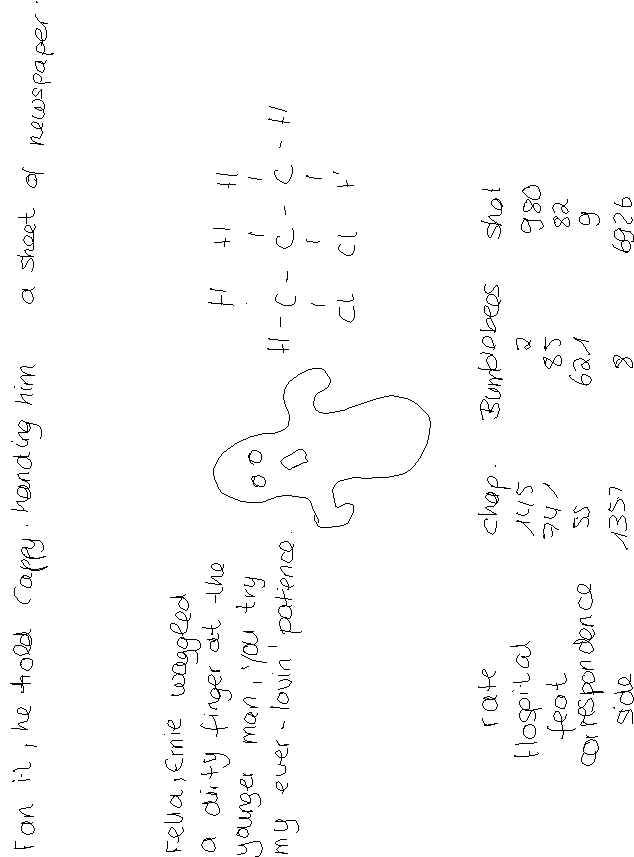 Fan it, he told Cappy. handing him a sheet of newspaper.
Fella, Ernie waggled
a dirty finger at the
younger man, 'you try
my ever-lovin' patience.
H H H
H-C-C-C-H
Cl Cl H
rate chap. Bumblebees shot
Hospital 145 2 980
feat 741 85 82
correspondence 55 621 9
side 1357 8 6926